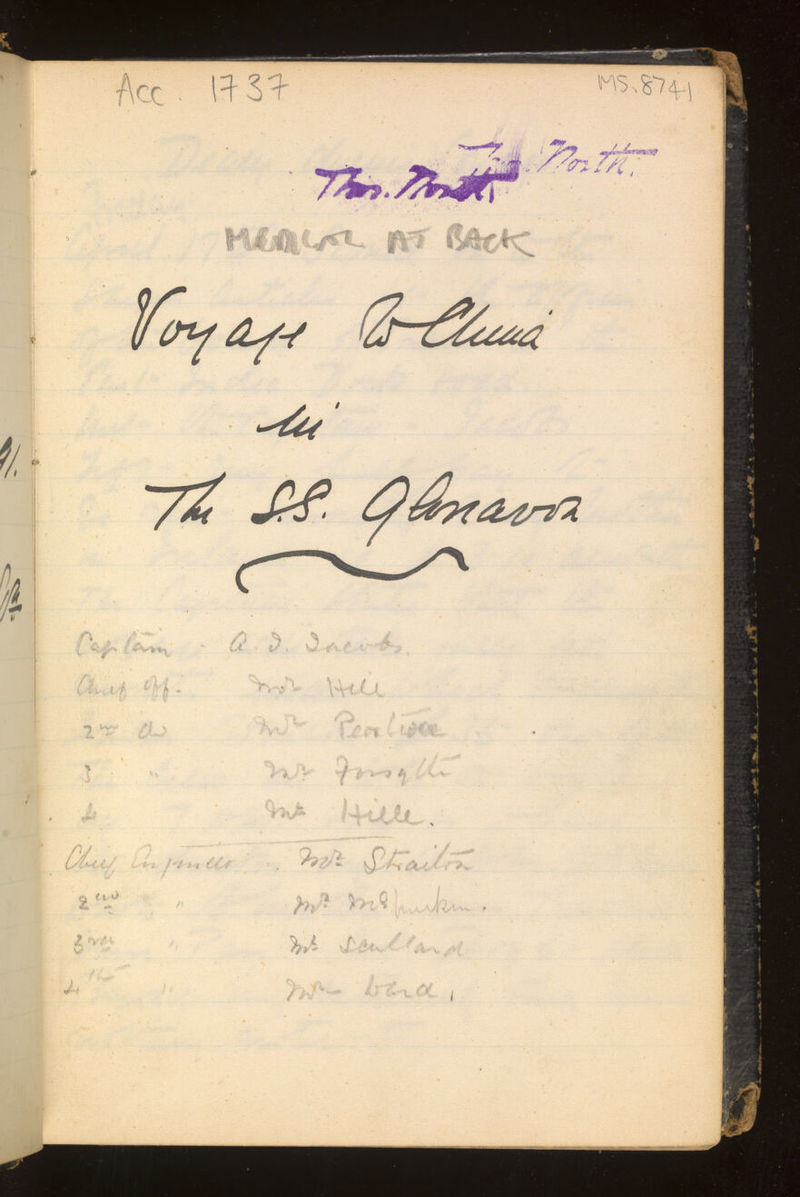 Acc. 1737
MS.8741
Thos. North.
Thos. North
MEDICAL AT BACK
Voyage to China
in
The S.S. Glenavon
Captain - A. D. Jacobs.
Chief off. Mr Hill
2nd do Mr
3 " Mr Forsyth
4 Mr Hille.
Chief Engineer . Mr Straiton
2nd " Mr
3rd " Mr Scullard
4th " Mr Ward.